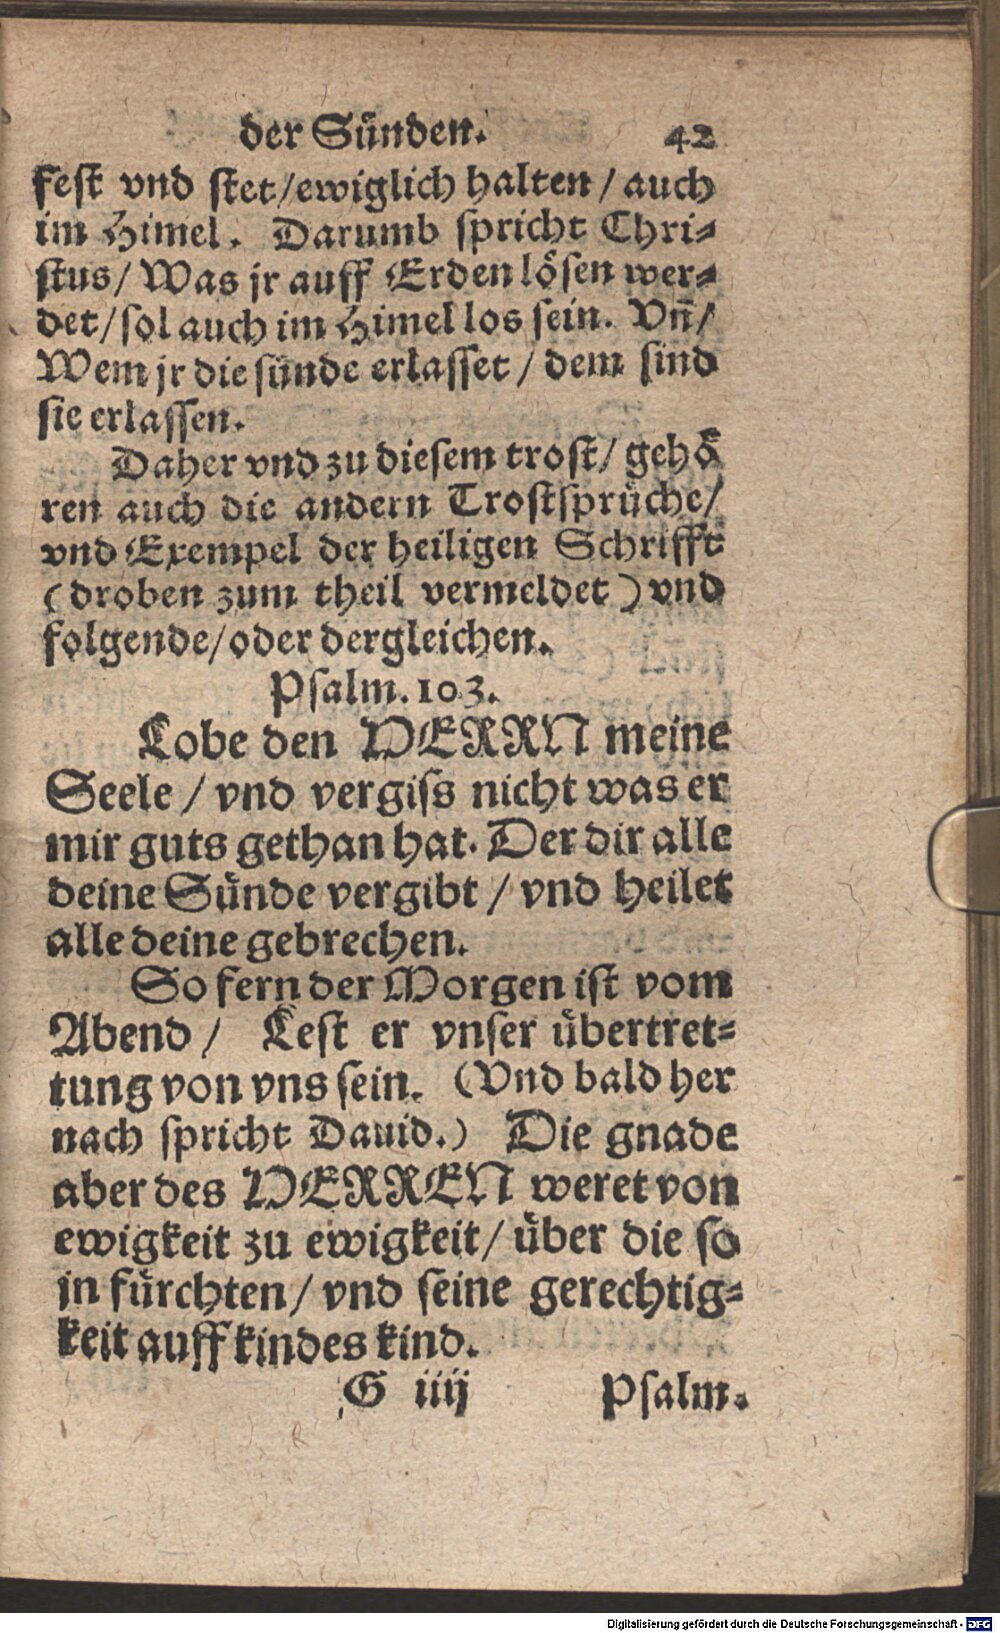 der Sünden. 42
fest vnd stet/ewiglich halten / auch
im Himel. Darumb spricht Chri⸗
stus/ Was jr auff Erden lösen wer⸗
det/sol auch im Himel los sein. Vn̄/
Wem jr die sünde erlasset / dem sind
sie erlassen.
Daher vnd zu diesem trost/ gehö
ren auch die andern Trostsprüche/
vnd Exempel der heiligen Schrifft
(droben zum theil vermeldet) vnd
folgende/oder dergleichen.
Psalm. 103.
Lobe den HERRN meine
Seele / vnd vergiss nicht was er
mir guts gethan hat. Der dir alle
deine Sünde vergibt / vnd heilet
alle deine gebrechen.
So fern der Morgen ist vom
Abend / Lest er vnser übertret⸗
tung von vns sein. (Vnd bald her
nach spricht Dauid.) Die gnade
aber des HERREN weret von
ewigkeit zu ewigkeit/ über die so
jn fürchten / vnd seine gerechtig⸗
keit auff kindes kind.
G iiij Psalm.
Digitalisierung gefördert durch die Deutsche Forschungsgemeinschaft - DFG